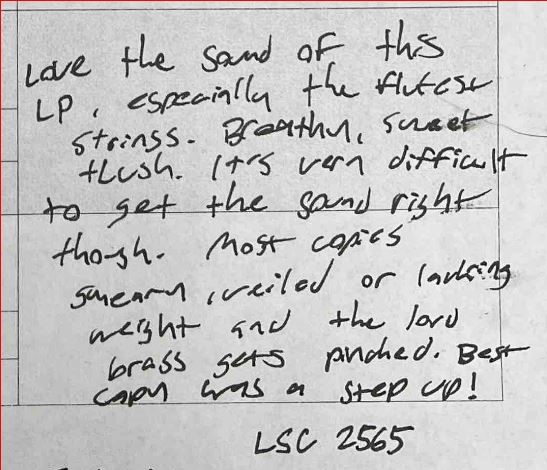 Love the sound of this
LP, especially the flutes +
strings. Breathy, sweet
+ lush. It's very difficult
to get the sound right
though. Most copies
smeary, veiled or lacking
weight and the loud
brass gets pinched. Best
copy was a step up!
LSC 2565